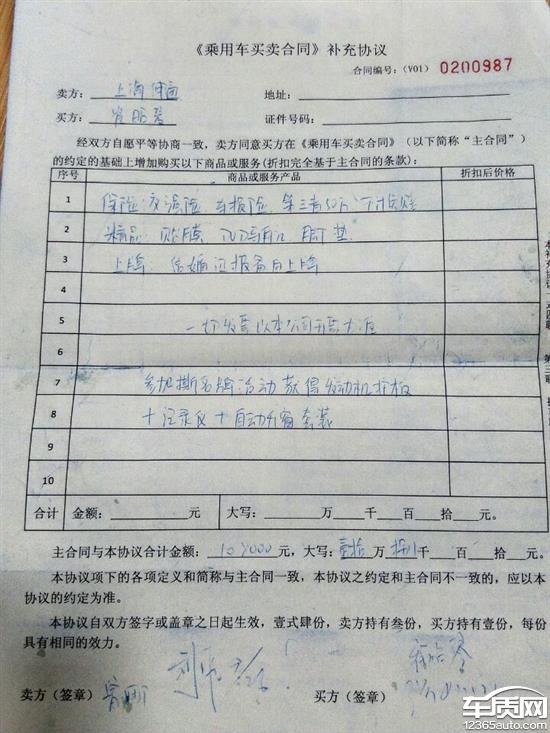 《乘用车买卖合同》补充协议
合同编号：(V01) 0200987
卖方：上海 地址：
买方： 证件号码：
经双方自愿平等协商一致，卖方同意买方在《乘用车买卖合同》（以下简称“主合同”）
的约定的基础上增加购买以下商品或服务(折扣完全基于主合同的条款)：
序号 商品或服务产品 折扣后价格
1 保险：交强险 车损险 第三者50万 不计免赔
2 精品：贴膜 脚垫
3 上牌：
4
5 一切发票以本公司开票为准
6
7 参加撕名牌活动 获得发动机护板
8 +记录仪+自动升窗套装
9
10
合计 金额： 元。 大写： 万 千 百 拾 元。
主合同与本协议合计金额： 元，大写：壹拾 万 捌 千 百 拾 元。
本协议项下的各项定义和简称与主合同一致，本协议之约定和主合同不一致的，应以本
协议的约定为准。
本协议自双方签字或盖章之日起生效，壹式肆份，卖方持有叁份，买方持有壹份，每份
具有相同的效力。
卖方（签章） 买方（签章）
车质网
www.12365auto.com